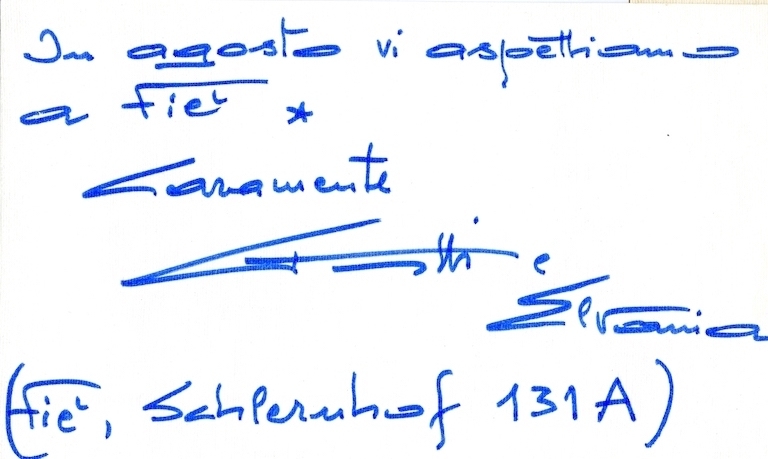 In agosto vi aspettiamo
a Fiè *
Caramente
e
Elvania
(Fiè, Schlernhof 131A)